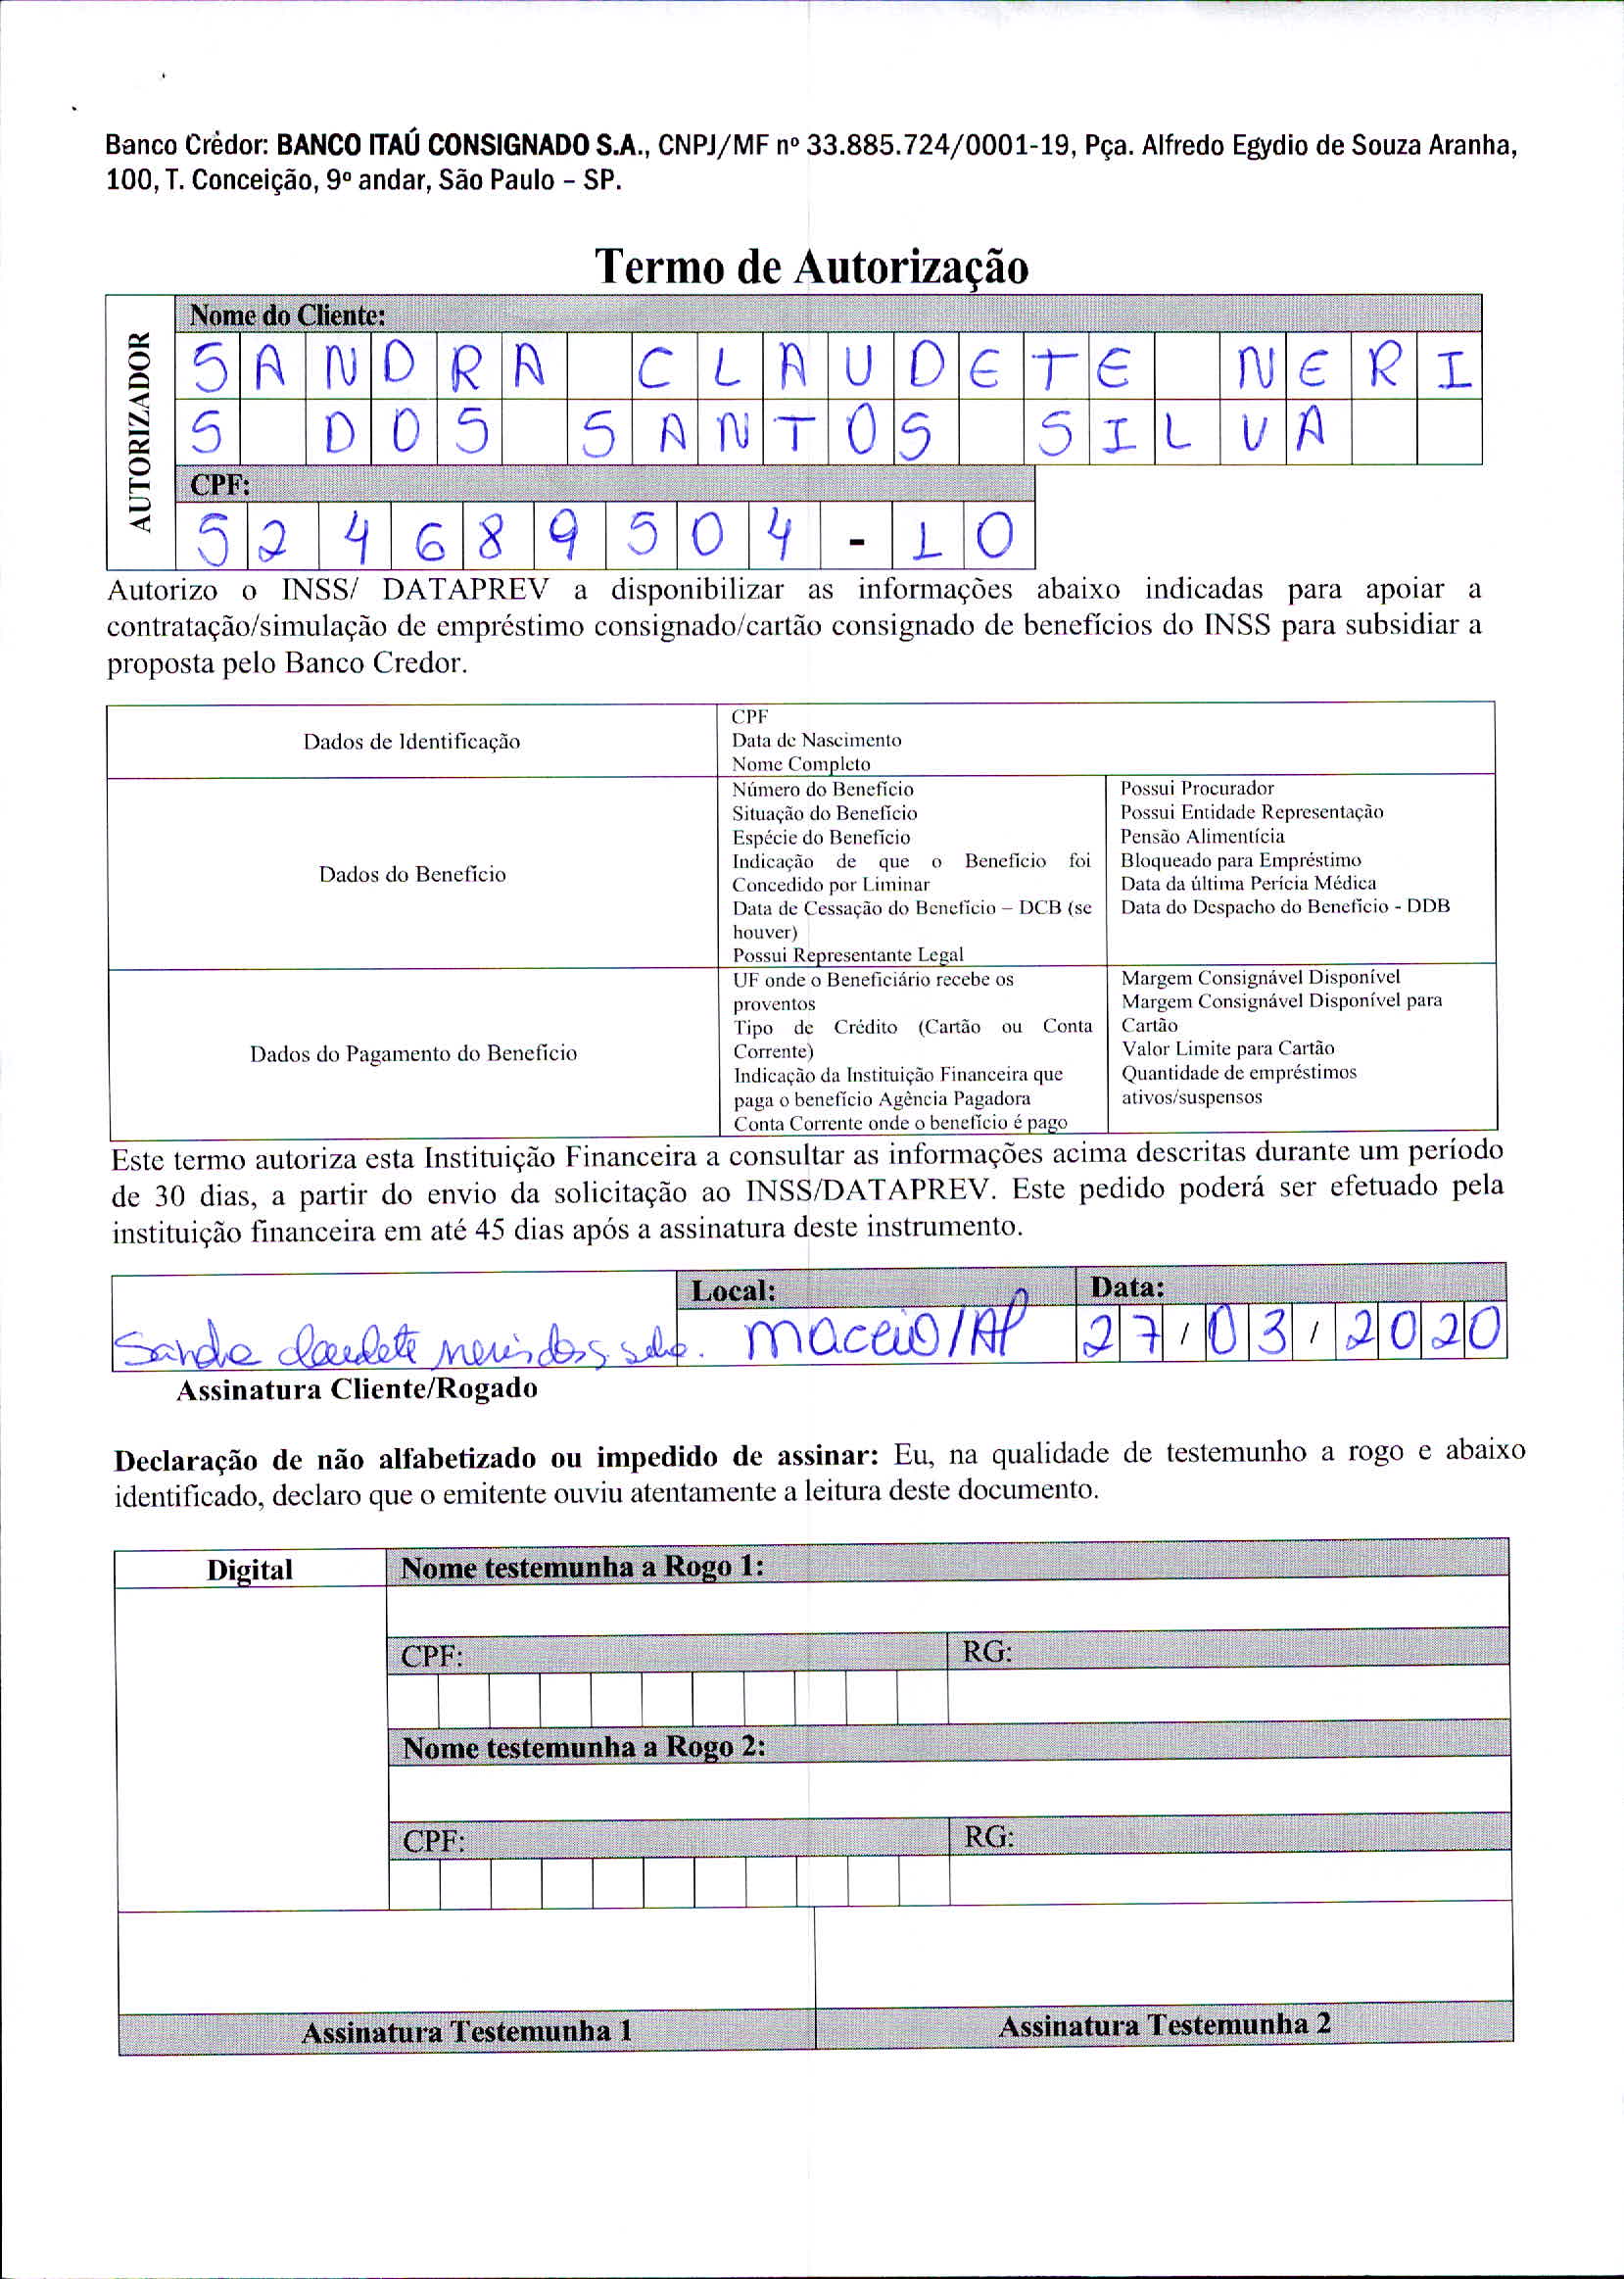 Banco Crèdor: BANCO ITAÚ CONSIGNADO S.A., CNPJ/MF nº 33.885.724/0001-19, Pça. Alfredo Egydio de Souza Aranha,
100, T. Conceição, 9º andar, São Paulo – SP.
Termo de Autorização
AUTORIZADOR
Nome do Cliente:
SANDRA CLAUDETE NERI
S DOS SANTOS SILVA
CPF:
524689504-10
Autorizo o INSS/ DATAPREV a disponibilizar as informações abaixo indicadas para apoiar a
contratação/simulação de empréstimo consignado/cartão consignado de benefícios do INSS para subsidiar a
proposta pelo Banco Credor.
Dados de Identificação
CPF
Data de Nascimento
Nome Completo
Dados do Benefício
Número do Benefício
Situação do Benefício
Espécie do Benefício
Indicação de que o Benefício foi
Concedido por Liminar
Data de Cessação do Benefício – DCB (se
houver)
Possui Representante Legal
Possui Procurador
Possui Entidade Representação
Pensão Alimentícia
Bloqueado para Empréstimo
Data da última Perícia Médica
Data do Despacho do Benefício - DDB
Dados do Pagamento do Benefício
UF onde o Beneficiário recebe os
proventos
Tipo de Crédito (Cartão ou Conta
Corrente)
Indicação da Instituição Financeira que
paga o benefício Agência Pagadora
Conta Corrente onde o benefício é pago
Margem Consignável Disponível
Margem Consignável Disponível para
Cartão
Valor Limite para Cartão
Quantidade de empréstimos
ativos/suspensos
Este termo autoriza esta Instituição Financeira a consultar as informações acima descritas durante um período
de 30 dias, a partir do envio da solicitação ao INSS/DATAPREV. Este pedido poderá ser efetuado pela
instituição financeira em até 45 dias após a assinatura deste instrumento.
Local:
Data:
Sandra Claudete Neris dos
Maceio/AP
27/03/2020
Assinatura Cliente/Rogado
Declaração de não alfabetizado ou impedido de assinar: Eu, na qualidade de testemunho a rogo e abaixo
identificado, declaro que o emitente ouviu atentamente a leitura deste documento.
Digital
Nome testemunha a Rogo 1:
CPF:
RG:
Nome testemunha a Rogo 2:
CPF:
RG:
Assinatura Testemunha 1
Assinatura Testemunha 2